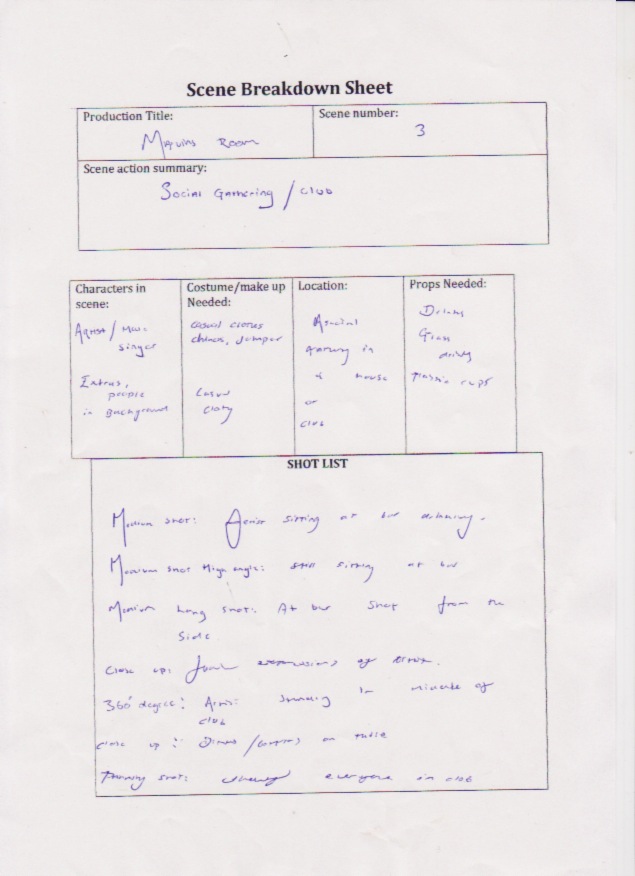 Scene Breakdown Sheet
Production Title:
Marvins Room
Scene number:
3
Scene action summary:
Social Gathering / club
Characters in
scene:
Artist / Male
singer
Extras,
people
in Background
Costume/make up
Needed:
casual clothes
chinos, Jumper
Casual
Location:
A social
in
a house
or
club
Props Needed:
Drinks
Glass
Plastic cups
SHOT LIST
Medium shot: Artist sitting at bar
Medium shot High angle: still sitting at bar
Medium Long shot: At bar shot from the
side
Close up: expressions of artist.
360 degree: Artist standing in middle of
club
close up: Drinks / on table
Panning shot: everyone in club